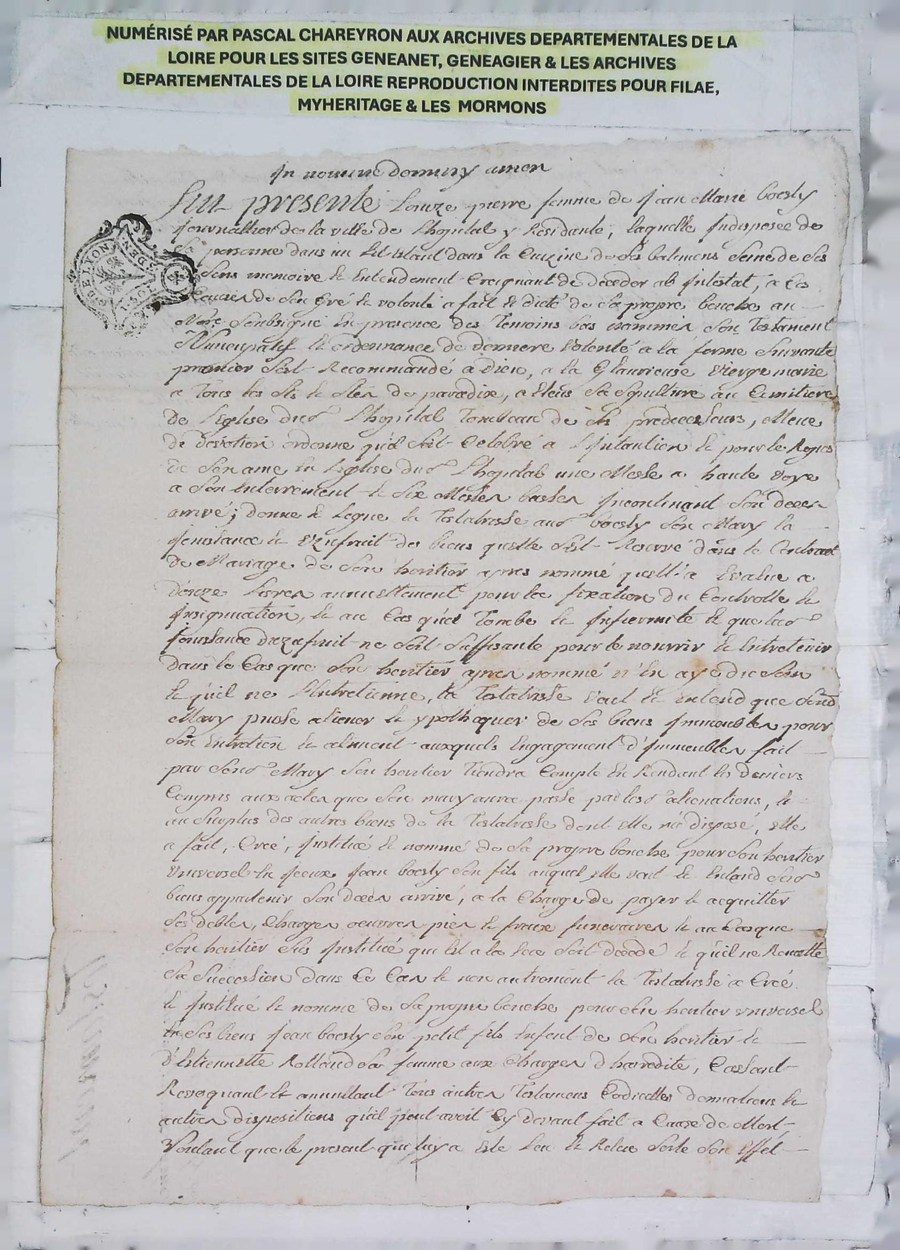 NUMÉRISÉ PAR PASCAL CHAREYRON AUX ARCHIVES DEPARTEMENTALES DE LA
LOIRE POUR LES SITES GENEANET, GENEAGIER & LES ARCHIVES
DEPARTEMENTALES DE LA LOIRE REPRODUCTION INTERDITES POUR FILAE,
MYHERITAGE & LES MORMONS
In nomine dominy amen
Fut presente Louize pierre femme de Jean Marie boesly
Journallier de la ville de Lhopital y Residante, laquelle Indisposée de
sa personne dans un Lit Estant dans la Cuizine de ses batimens Seine de Ses
Sens memoire et Entendement Craignant de deceder ab Intestat, a Ces
Causes de Son Gré et volonté a fait et dicté de Sa propre bouche au
Nore Soubsigné En presence des Temoins bas nommés Son Testament
Nuncupatif et ordonnance de derniere volonté a la forme Suivante
premier Sest Recommandé a Dieu, a la Glaurieuse Vierge marie
a Tous les Sts et Stes de paradire, a Eleus Sa Sepulture au Cimitiere
de Leglise dud Lhopital Tombeau de predecesseurs, Meue
de devotion ordonne quil Soit Celebré a L'Intantion et pour le Repos
de Son ame En Leglise dud Lhopital une Messe a haute Voye
a Son Enterrement et Six Messes basses Incontinant Son decès
arrivé; donne et Legue la Testatrisse aud boesly Son Mary la
Jouissance et Uzufruit des biens quelle Sest Reservé dans le Contract
de Mariage de Son heritier apres nommé quelle a Evalué a
douze Livres annuellement pour la fixation du Controlle et
Insignuation, et au Cas quil Tombe en Infirmité et que lad
Jouissance duzufruit ne Soit Suffisante pour le nourrir et Entretenir
dans le Cas que Son heritier apres nommé n'En aye du Soin
et quil ne l'Entretienne, la Testatrisse Veut et Entend que Send
Mary puisse aliener et ypothequer de Ses biens Immeubles pour
Son Entretien et aliment auxquels Engagement d'Immeubles fait
par Sond Mary Son heritier Tiendra Compte En Rendant les deniers
Compris aux actes que Son mary aurea passé par lesd alienations, et
au Surplus des autres biens de la Testatrisse dont elle n'a disposé, elle
a fait, Creé, Institué et nommé de Sa propre bouche pour Son heritier
Universel Sieur Jean boesly Son fils auquel elle Veut et Entend Sesd
biens appartenir Son decès arrivé, a la Charge de payer et acquitter
Ses debtes, Charges oeuvres pies et fraix funeraires et au Cas que
Son heritier Sus Institué qui Est a Soit decedé et quil ne Recueille
Sa Succession dans Ce Cas et non autrement la Testatrisse a Creé
et Institué et nommé de Sa propre bouche pour Son heritier universel
En Ses biens Jean boesly Son petit fils Enfant de Son heritier et
d'Estiennette Rolland Sa femme aux Charges d'heredité, Cassant
Revoquant et annullant Tous autres Testamens Codicilles donnations et
autres dispositions quil peut avoir Cy devant fait a Cause de Mort,
Voulant que le present qui luy a Esté Leu et Releu Sorte Son Effet